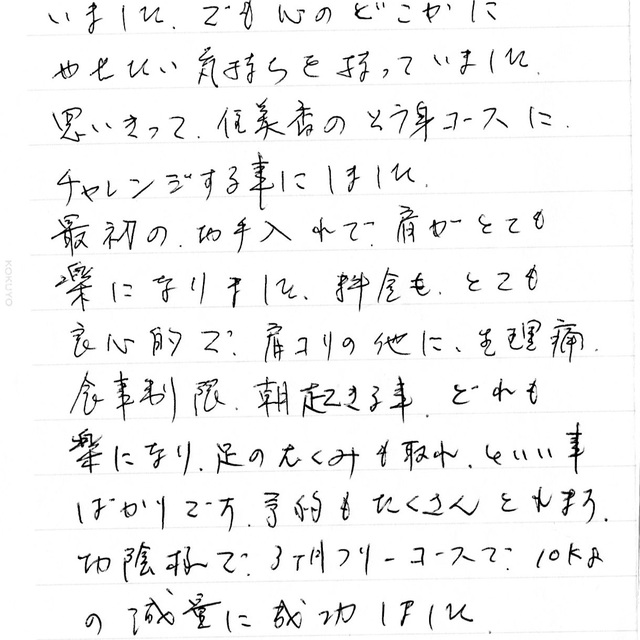 いました。でも心のどこかに
やせたい気持ちを持っていました。
思いきって、佳美香のそう身コースに、
チャレンジする事にしました。
最初の、お手入れで、肩がとても
楽になりました。料金も、とても
良心的で、肩コリの他に、生理痛、
食事制限、朝起きる事、どれも
楽になり、足のむくみも取れ、といい事
ばかりです。予約もたくさんとれます。
お陰様で、3ヶ月フリーコースで、10kg
の減量に成功しました。
KOKUYO